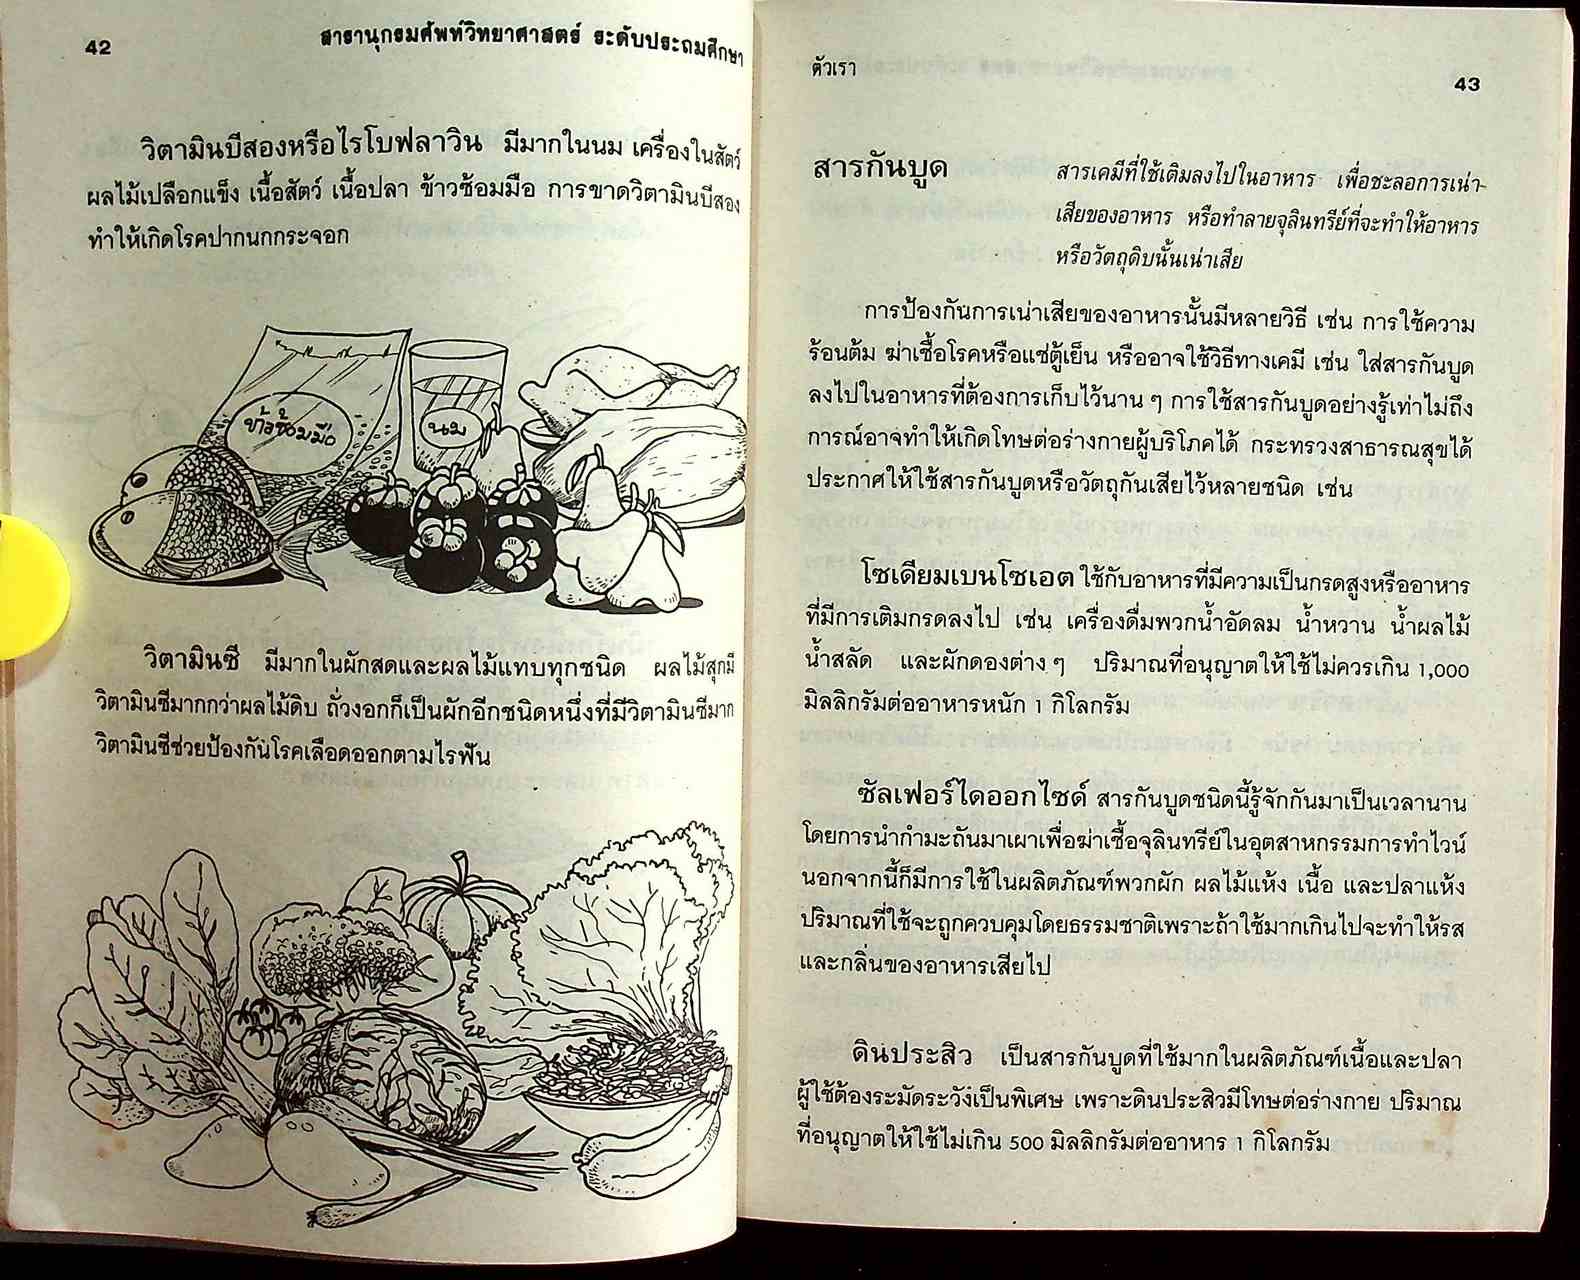 42
สารานุกรมศัพท์วิทยาศาสตร์ ระดับประถมศึกษา
วิตามินบีสองหรือไรโบฟลาวิน มีมากในนม เครื่องในสัตว์
ผลไม้เปลือกแข็ง เนื้อสัตว์ เนื้อปลา ข้าวซ้อมมือ การขาดวิตามินบีสอง
ทำให้เกิดโรคปากนกกระจอก
ข้าวซ้อมมือ
นม
วิตามินซี มีมากในผักสดและผลไม้แทบทุกชนิด ผลไม้สุกมี
วิตามินซีมากกว่าผลไม้ดิบ ถั่วงอกก็เป็นผักอีกชนิดหนึ่งที่มีวิตามินซีมาก
วิตามินซีช่วยป้องกันโรคเลือดออกตามไรฟัน
ตัวเรา
43
สารกันบูด
สารเคมีที่ใช้เติมลงไปในอาหาร เพื่อชะลอการเน่า-
เสียของอาหาร หรือทำลายจุลินทรีย์ที่จะทำให้อาหาร
หรือวัตถุดิบนั้นเน่าเสีย
การป้องกันการเน่าเสียของอาหารนั้นมีหลายวิธี เช่น การใช้ความ
ร้อนต้ม ฆ่าเชื้อโรคหรือแช่ตู้เย็น หรืออาจใช้วิธีทางเคมี เช่น ใส่สารกันบูด
ลงไปในอาหารที่ต้องการเก็บไว้นาน ๆ การใช้สารกันบูดอย่างรู้เท่าไม่ถึง
การณ์อาจทำให้เกิดโทษต่อร่างกายผู้บริโภคได้ กระทรวงสาธารณสุขได้
ประกาศให้ใช้สารกันบูดหรือวัตถุกันเสียไว้หลายชนิด เช่น
โซเดียมเบนโซเอต ใช้กับอาหารที่มีความเป็นกรดสูงหรืออาหาร
ที่มีการเติมกรดลงไป เช่น เครื่องดื่มพวกน้ำอัดลม น้ำหวาน น้ำผลไม้
น้ำสลัด และผักดองต่าง ๆ ปริมาณที่อนุญาตให้ใช้ไม่ควรเกิน 1,000
มิลลิกรัมต่ออาหารหนัก 1 กิโลกรัม
ซัลเฟอร์ไดออกไซด์ สารกันบูดชนิดนี้รู้จักกันมาเป็นเวลานาน
โดยการนำกำมะถันมาเผาเพื่อฆ่าเชื้อจุลินทรีย์ในอุตสาหกรรมการทำไวน์
นอกจากนี้ก็มีการใช้ในผลิตภัณฑ์พวกผัก ผลไม้แห้ง เนื้อ และปลาแห้ง
ปริมาณที่ใช้จะถูกควบคุมโดยธรรมชาติเพราะถ้าใช้มากเกินไปจะทำให้รส
และกลิ่นของอาหารเสียไป
ดินประสิว เป็นสารกันบูดที่ใช้มากในผลิตภัณฑ์เนื้อและปลา
ผู้ใช้ต้องระมัดระวังเป็นพิเศษ เพราะดินประสิวมีโทษต่อร่างกาย ปริมาณ
ที่อนุญาตให้ใช้ไม่เกิน 500 มิลลิกรัมต่ออาหาร 1 กิโลกรัม